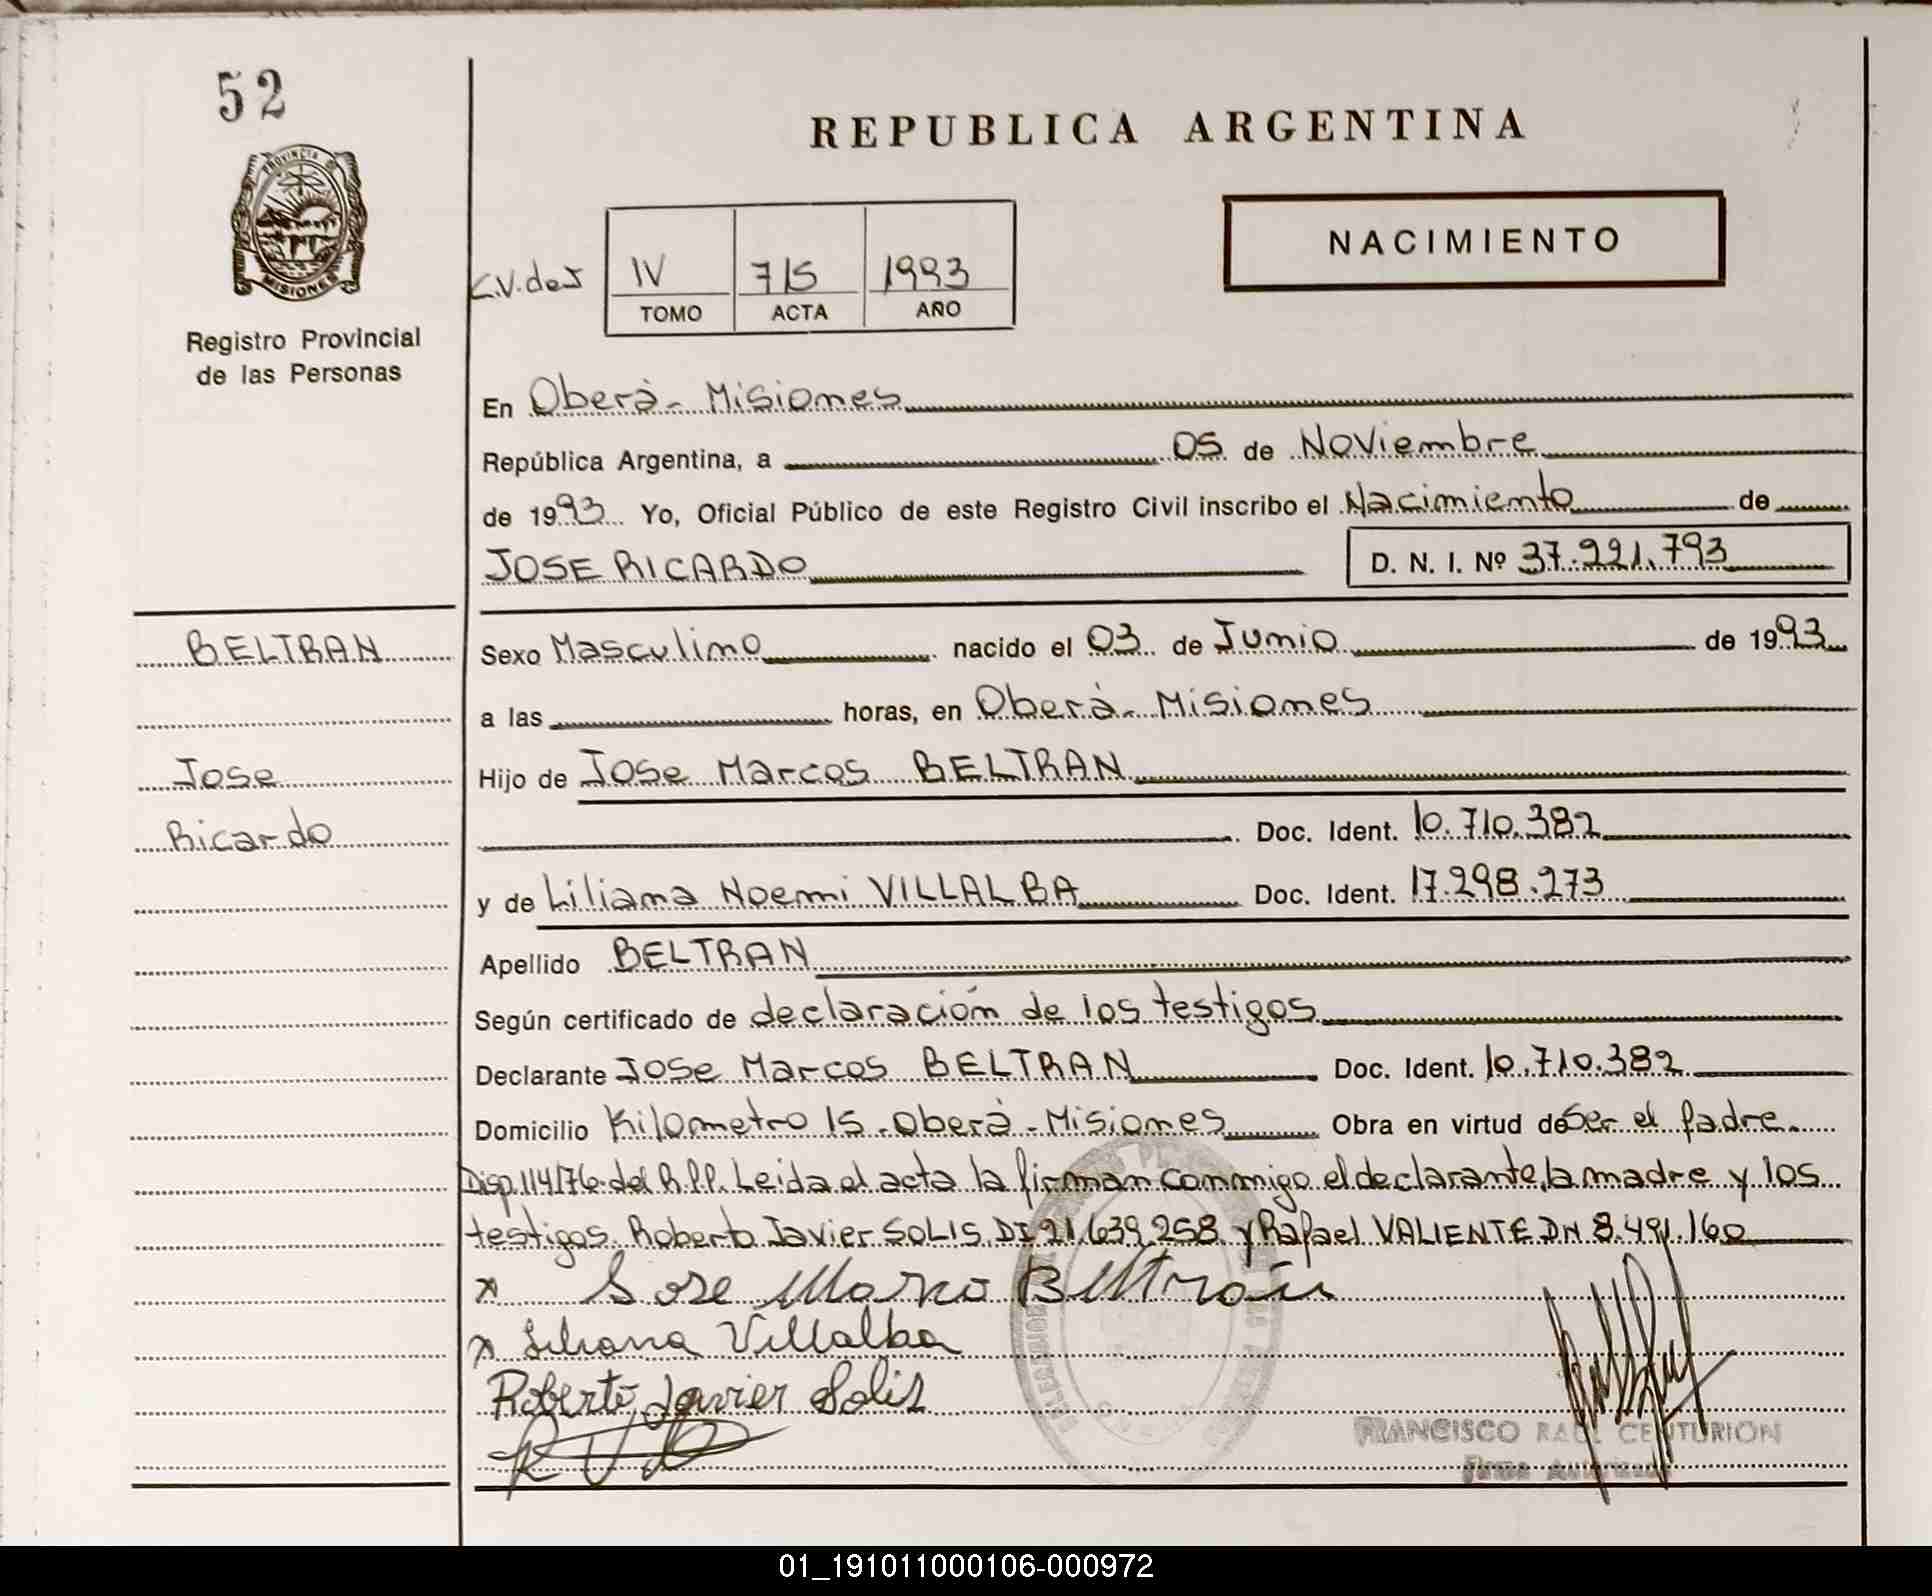 52
PROVINCIA DE
MISIONES
Registro Provincial
de las Personas
REPUBLICA ARGENTINA
NACIMIENTO
C.V. de J IV 715 1993
TOMO ACTA AÑO
En Oberá - Misiones
República Argentina, a 05 de Noviembre
de 1993 Yo, Oficial Público de este Registro Civil inscribo el Nacimiento de
JOSE RICARDO D. N. I. Nº 37.221.793
BELTRAN
Jose
Ricardo
Sexo Masculino nacido el 03 de Junio de 1993
a las horas, en Oberá - Misiones
Hijo de Jose Marcos BELTRAN
Doc. Ident. 10.710.382
y de Liliana Noemi VILLALBA Doc. Ident. 17.298.273
Apellido BELTRAN
Según certificado de declaración de los testigos
Declarante Jose Marcos BELTRAN Doc. Ident. 10.710.382
Domicilio Kilometro 15 - Oberá - Misiones Obra en virtud de ser el padre.
Disp. 114/76 del R.P.P. Leida el acta la firman conmigo el declarante, la madre y los
testigos Roberto Javier SOLIS DI 21.639.258 y Rafael VALIENTE DN 8.491.160
x Jose Marco Beltrán
x Liliana Villalba
Roberto Javier Solis
FRANCISCO RAUL CENTURION
Firma Autorizada
01_191011000106-000972